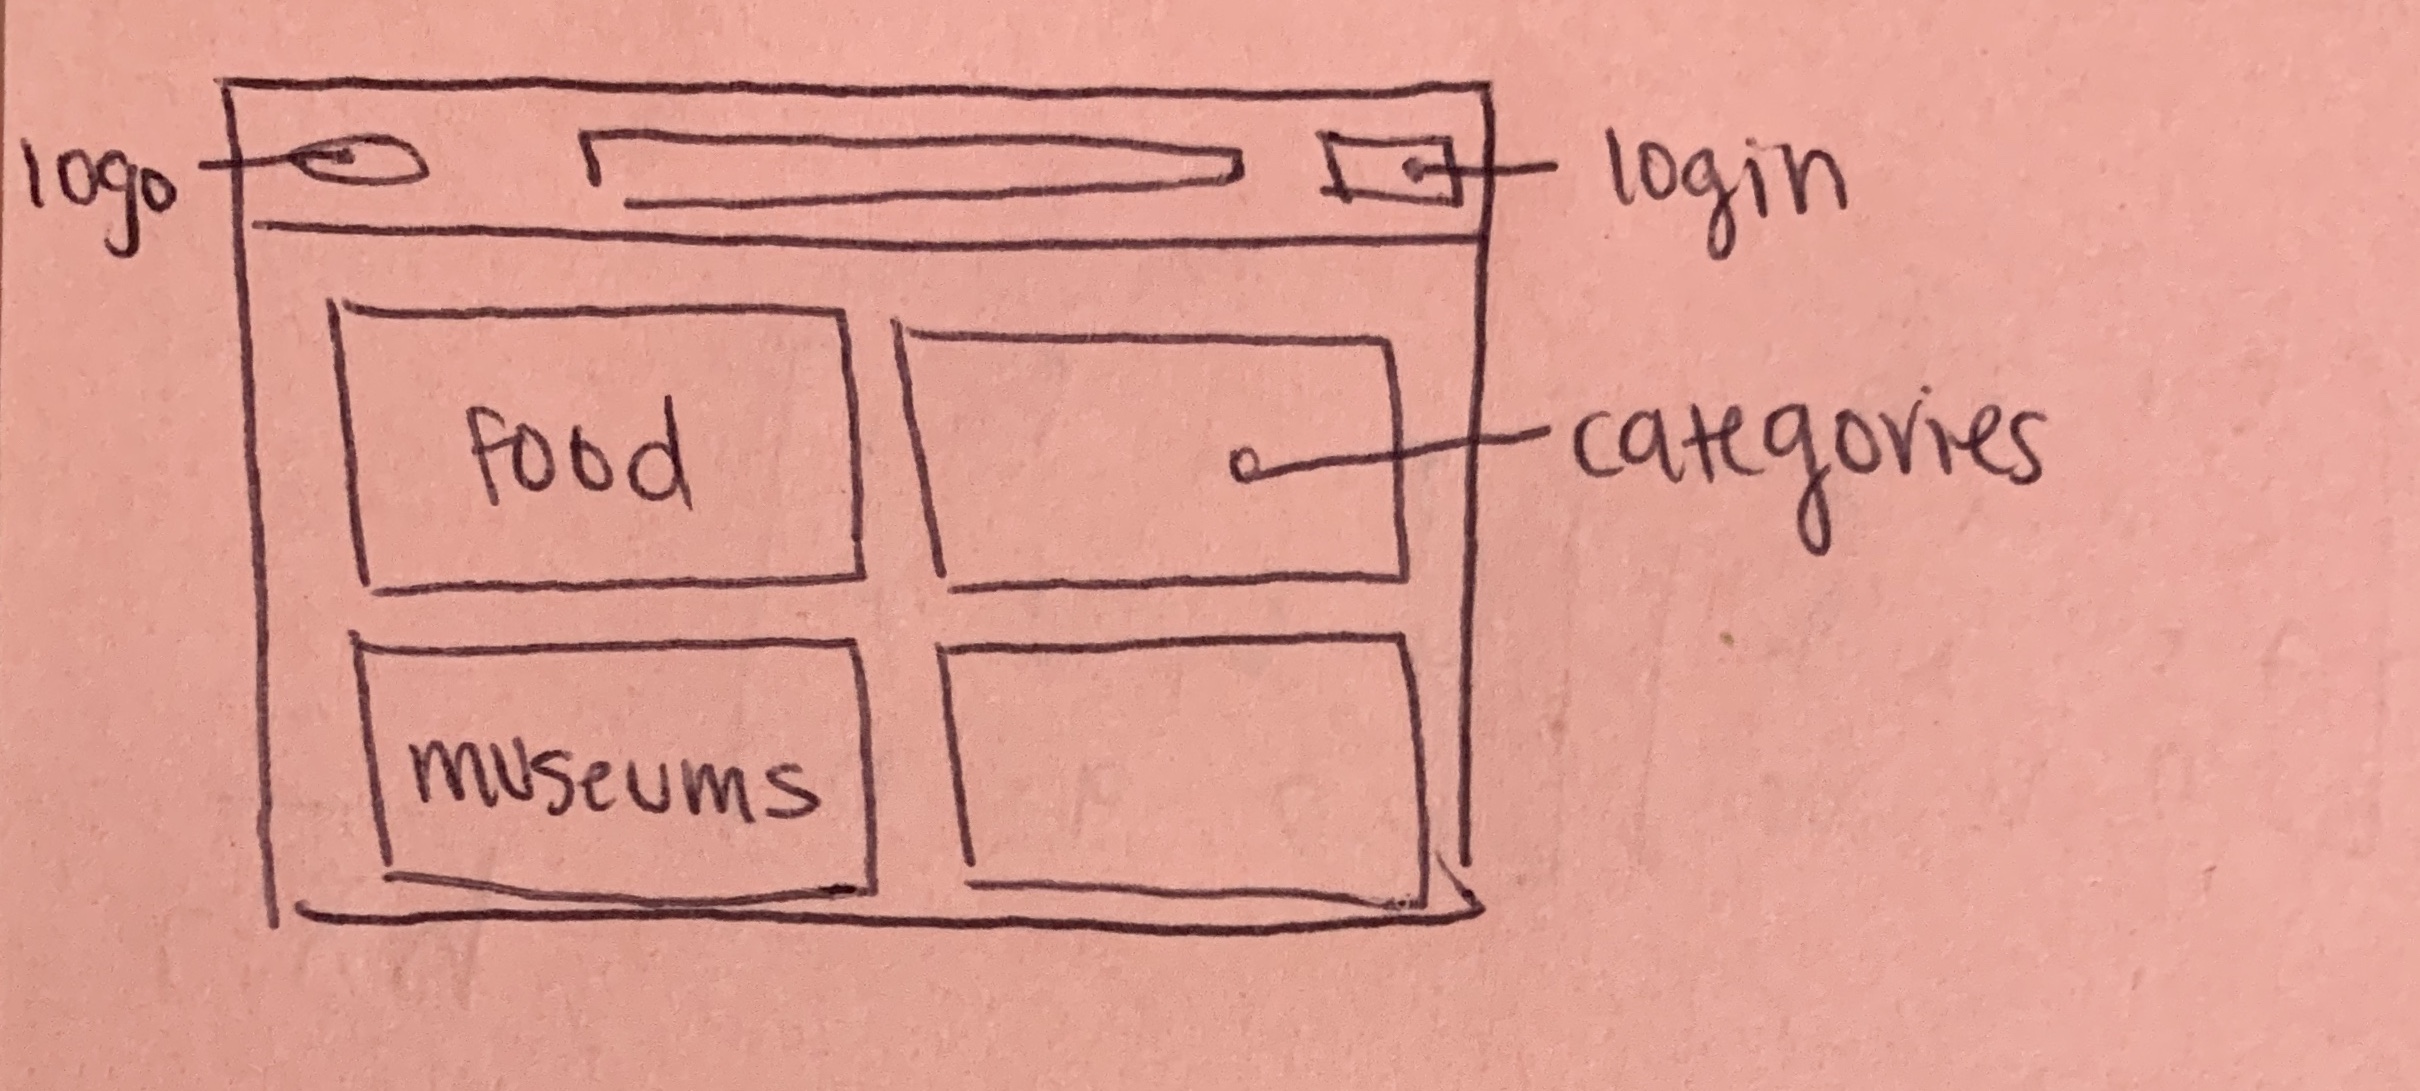 logo
login
food
categories
museums